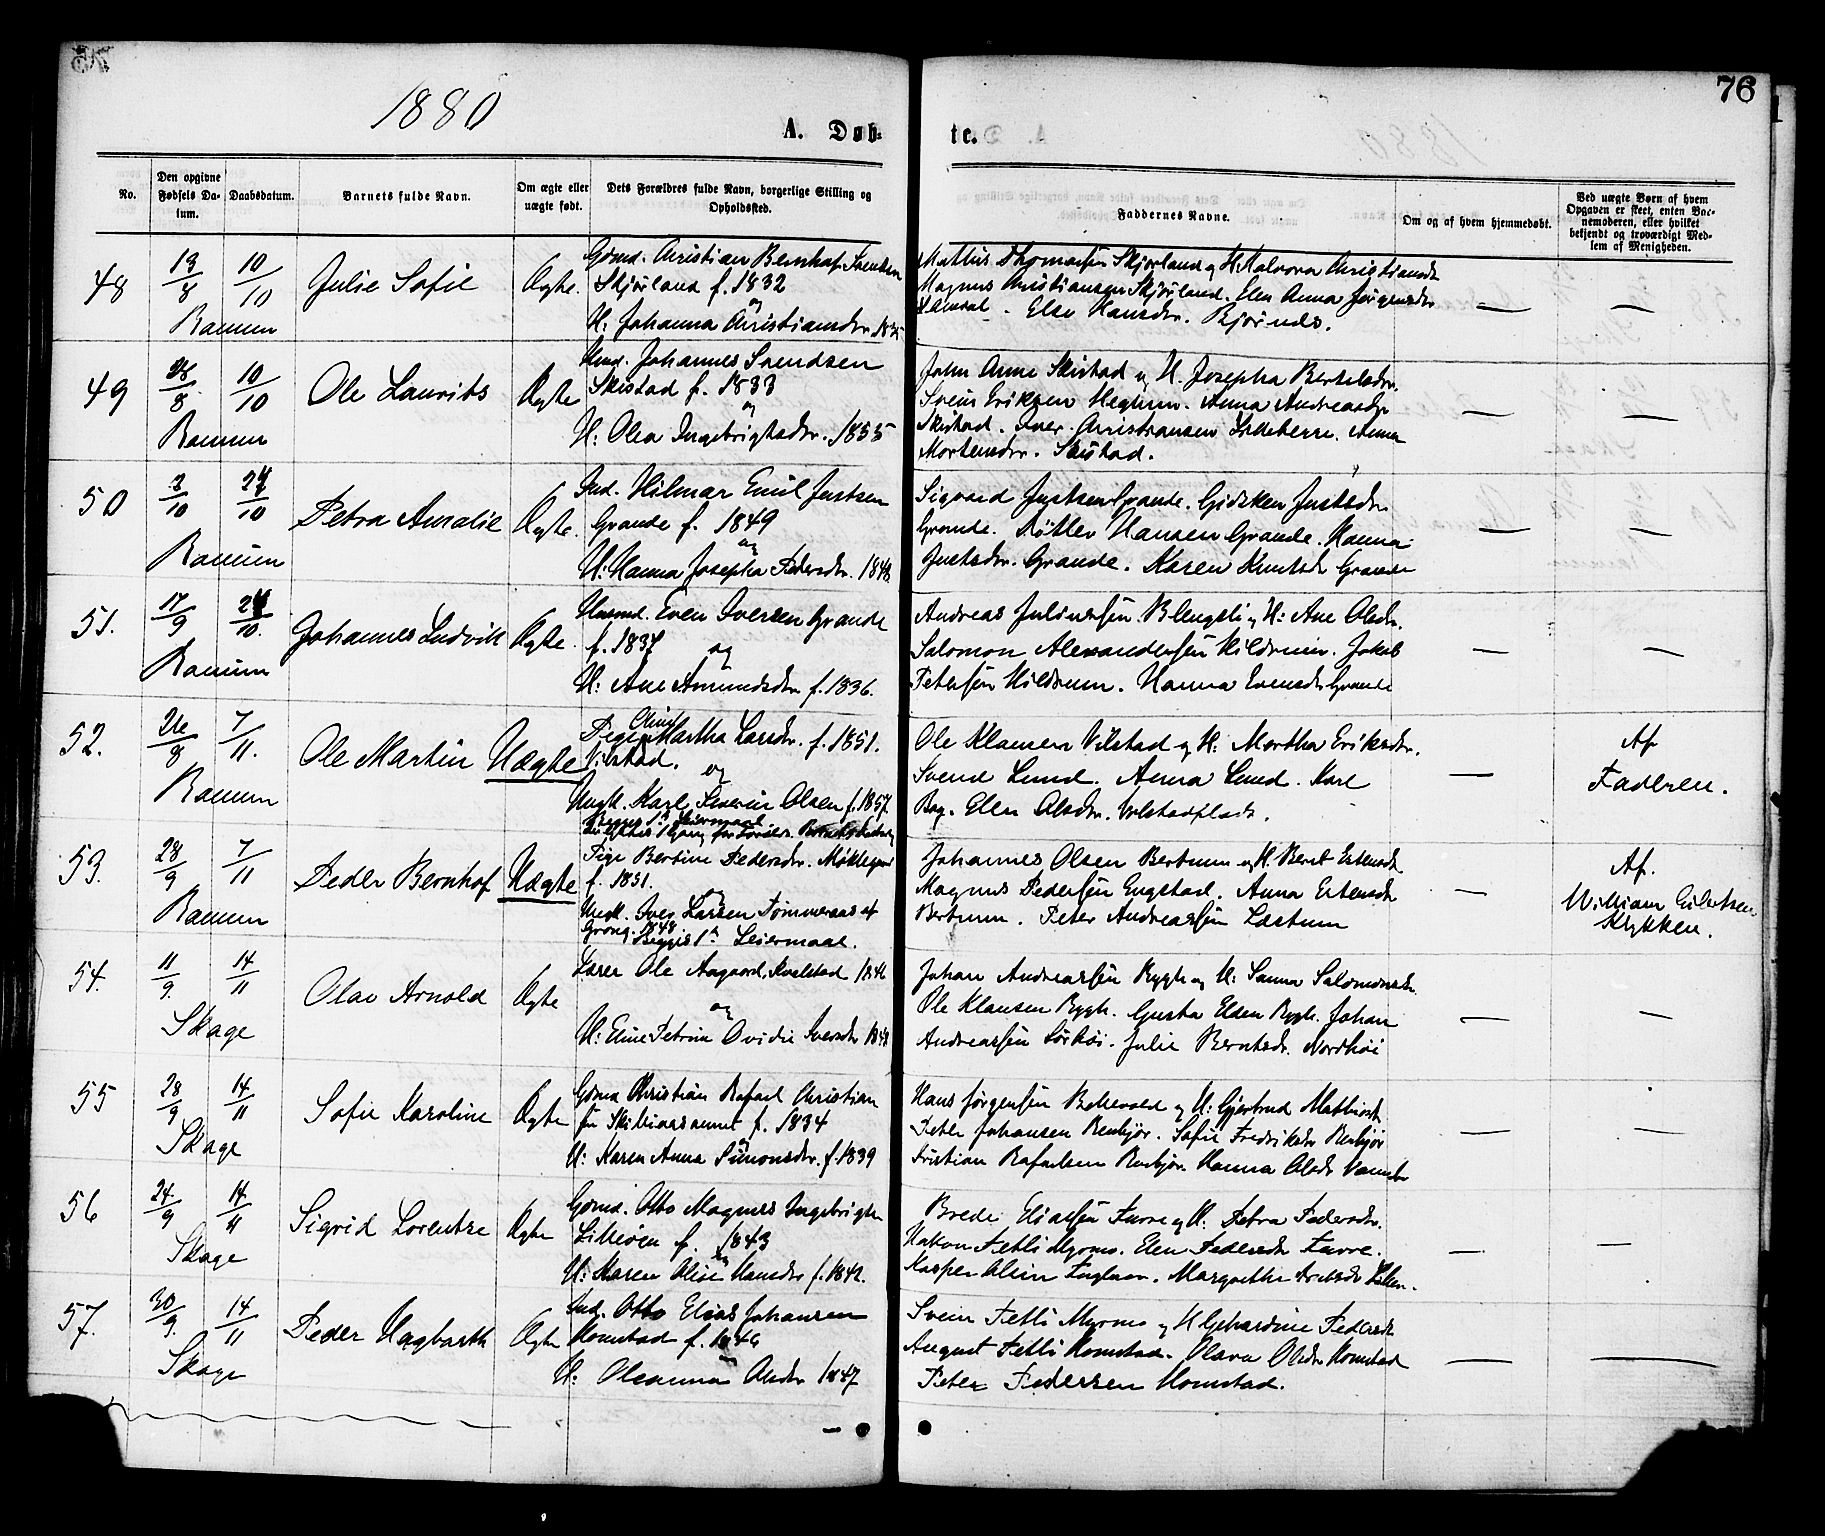 76
1880
A. Døbte.
No.
Den opgivne Fødsels Datum.
Daabsdatum.
Barnets fulde Navn.
Om ægte eller uægte født.
Dets Forældres fulde Navn, borgerlige Stilling og Opholdssted.
Faddernes Navne.
Om og af hvem hjemmedøbt.
Ved uægte Børn af hvem Opgaven er skeet, enten Barnemoderen, eller hvilket bekjendt og troværdigt Medlem af Menigheden.
48 13/8 10/10 Julie Sofie Ægte.
Ranum
Gdmd. Christian Bernhof Svendsen
Skjørland f. 1832
og
H: Johanna Christiansdr. 1835
Mathis Thomassen Skjørland og H. Halvora Christiansdr
Magnus Christiansen Skjørland. Elen Anna Jørgensdr
Else Hansdr. Bjørnes.
— —
49 10/10 Ole Laurits Ægte
Ranum
Johannes Svendsen
Skistad f. 1833
og
H: Olea Ingebrigtsdr. 1835
John Arne Skistad og H. Josepha Bertelsdr.
Svein Eriksen Heglum. Anna Andreasdr
Skistad. Iver Christiansen Anna
Mortensdr. Skistad.
— —
50 2/10 24/10 Petra Amalie Ægte.
Ranum
Ind. Hilmar Emil Justsen
Grande f. 1849
og
H: Hanna Josepha Pedersdr. 1848
Sigvard Justsen Grande. Gidsken Justsdr
Grande. Hansen Grande. Hanna
Justsdr. Grande. Karen Knutsdr Grande
— —
51. 17/9 24/10. Johannes Ludvik Ægte.
Ranum
Husmd. Even Iversen Grande
f. 1837 og
H: Ane Amundsdr f. 1836.
Andreas Julinussen Blengsli og H: Ane Olsdr.
Salomon Alexandersen Hildrum. Jakob
Petersen Hildrum. Hanna Evensdr Grande
— —
52. 26/8 7/11. Ole Martin Uægte
Ranum
Pigen Martha Larsdr. f. 1851.
Vilstad.
og
Ungk. Karl Severin Olsen f. 1857.
Begges 1ste Leiermaal
Ole Klausen Vilstad og H: Martha Eriksdr.
Svend Lund. Anna Lund. Karl
Elen Olsdr. Vilstadplads.
—
Af
Faderen.
53. 28/9 7/11 Peder Bernhof Uægte
Ranum
Pige Bertine Pedersdr. Møklegaard
f. 1851.
og
Ungk. Iver Larsen Tømmeraas af
Grong. 1848
Begges 1ste Leiermaal.
Johannes Olsen Bertnum og H. Berit Estensdr
Magnus Pedersen Engstad. Anna Estensdr
Bertnum. Peter Andreassen Lastum
—
Af.
William
Klykken.
54. 11/9. 14/11 Olav Arnold Ægte
Skage
Lærer Ole Aagaard, Kvelstad
og
H: Petrine Ovidie Iversdr
Johan Andreassen Rygh og H: Sanna Salomonsdr.
Ole Klausen Rygh. Gusta Elden Rygh. Johan
Andreassen Sørhøi. Julie Berntsdr. Nordhøi
— —
55 28/9 14/11 Sofie Karoline Ægte
Skage
Gdmd Christian Rafael Christian
sen f. 1834
og
H: Karen Anna Simonsdr. f. 1839
Hans Jørgensen og H: Gjertrud Mathiasdr
Peter Johansen Renbjør. Sofie Fredriksdr Renbjør
Kristian Rafaelsen Renbjør. Hanna Olsdr
— —
56 24/9 14/11 Sigrid Lorentze Ægte
Skage
Gdmd. Otto Magnus Ingebrigtsen
f. 1843
og
H: Karen Olise Hansdr f. 1842.
Brede Eliassen Furre og H. Petra Pedersdr.
Hakon Petti Myrmo. Elen Pedersdr Furre.
Kasper Margrethe
— —
57. 30/9. 14/11 Peder Hagbarth Ægte
Skage
Ind. Otto Elias Johansen
Homstad f. 1846
H: Oleanna Olsdr 1847
Svein Petti Myrmo og H Gjehardine Pedersdr
August Petti Homstad. Olava Olsdr Homstad
Peter Pedersen Homstad.
— —